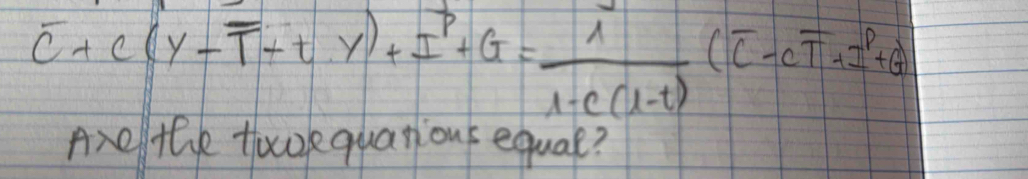 C̅ + c(Y - T̅ - t Y) + I^P + G = 1/(1-c(1-t)) (C̅ - cT̅ + I^P + G)
Are the two equations equal?